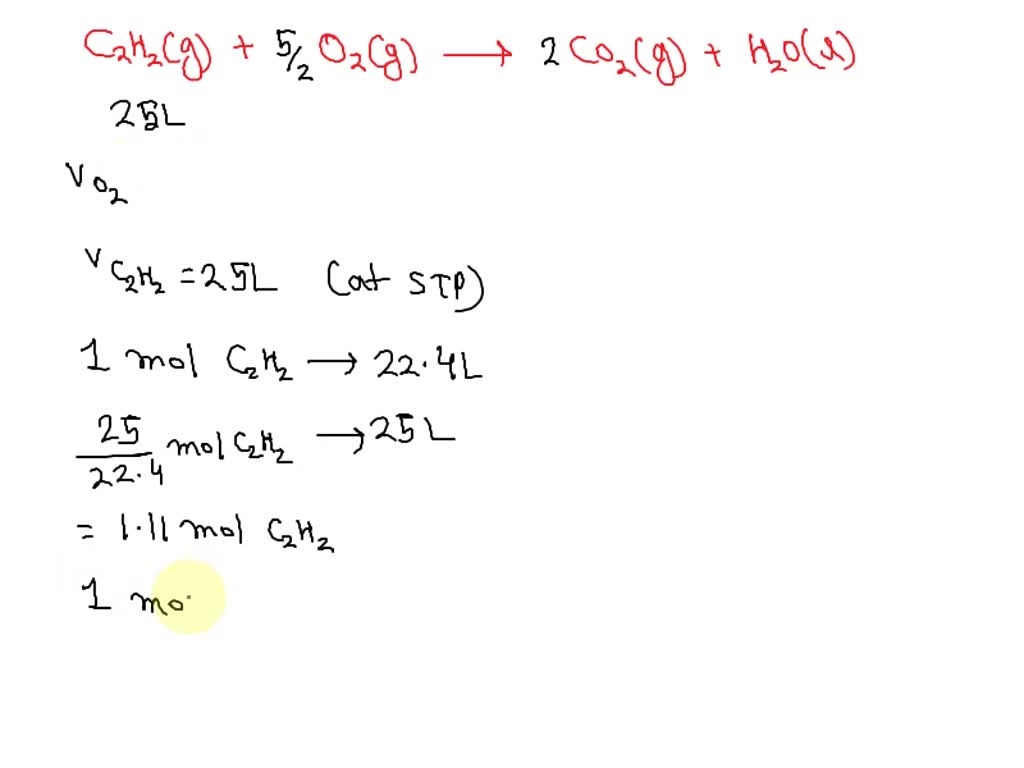 C₂H₂(g) + 5/2 O₂(g) → 2 CO₂(g) + H₂O(l)
25L
V O₂
V C₂H₂ = 25L (at STP)
1 mol C₂H₂ → 22.4L
25/22.4 mol C₂H₂ → 25L
= 1.11 mol C₂H₂
1 mo